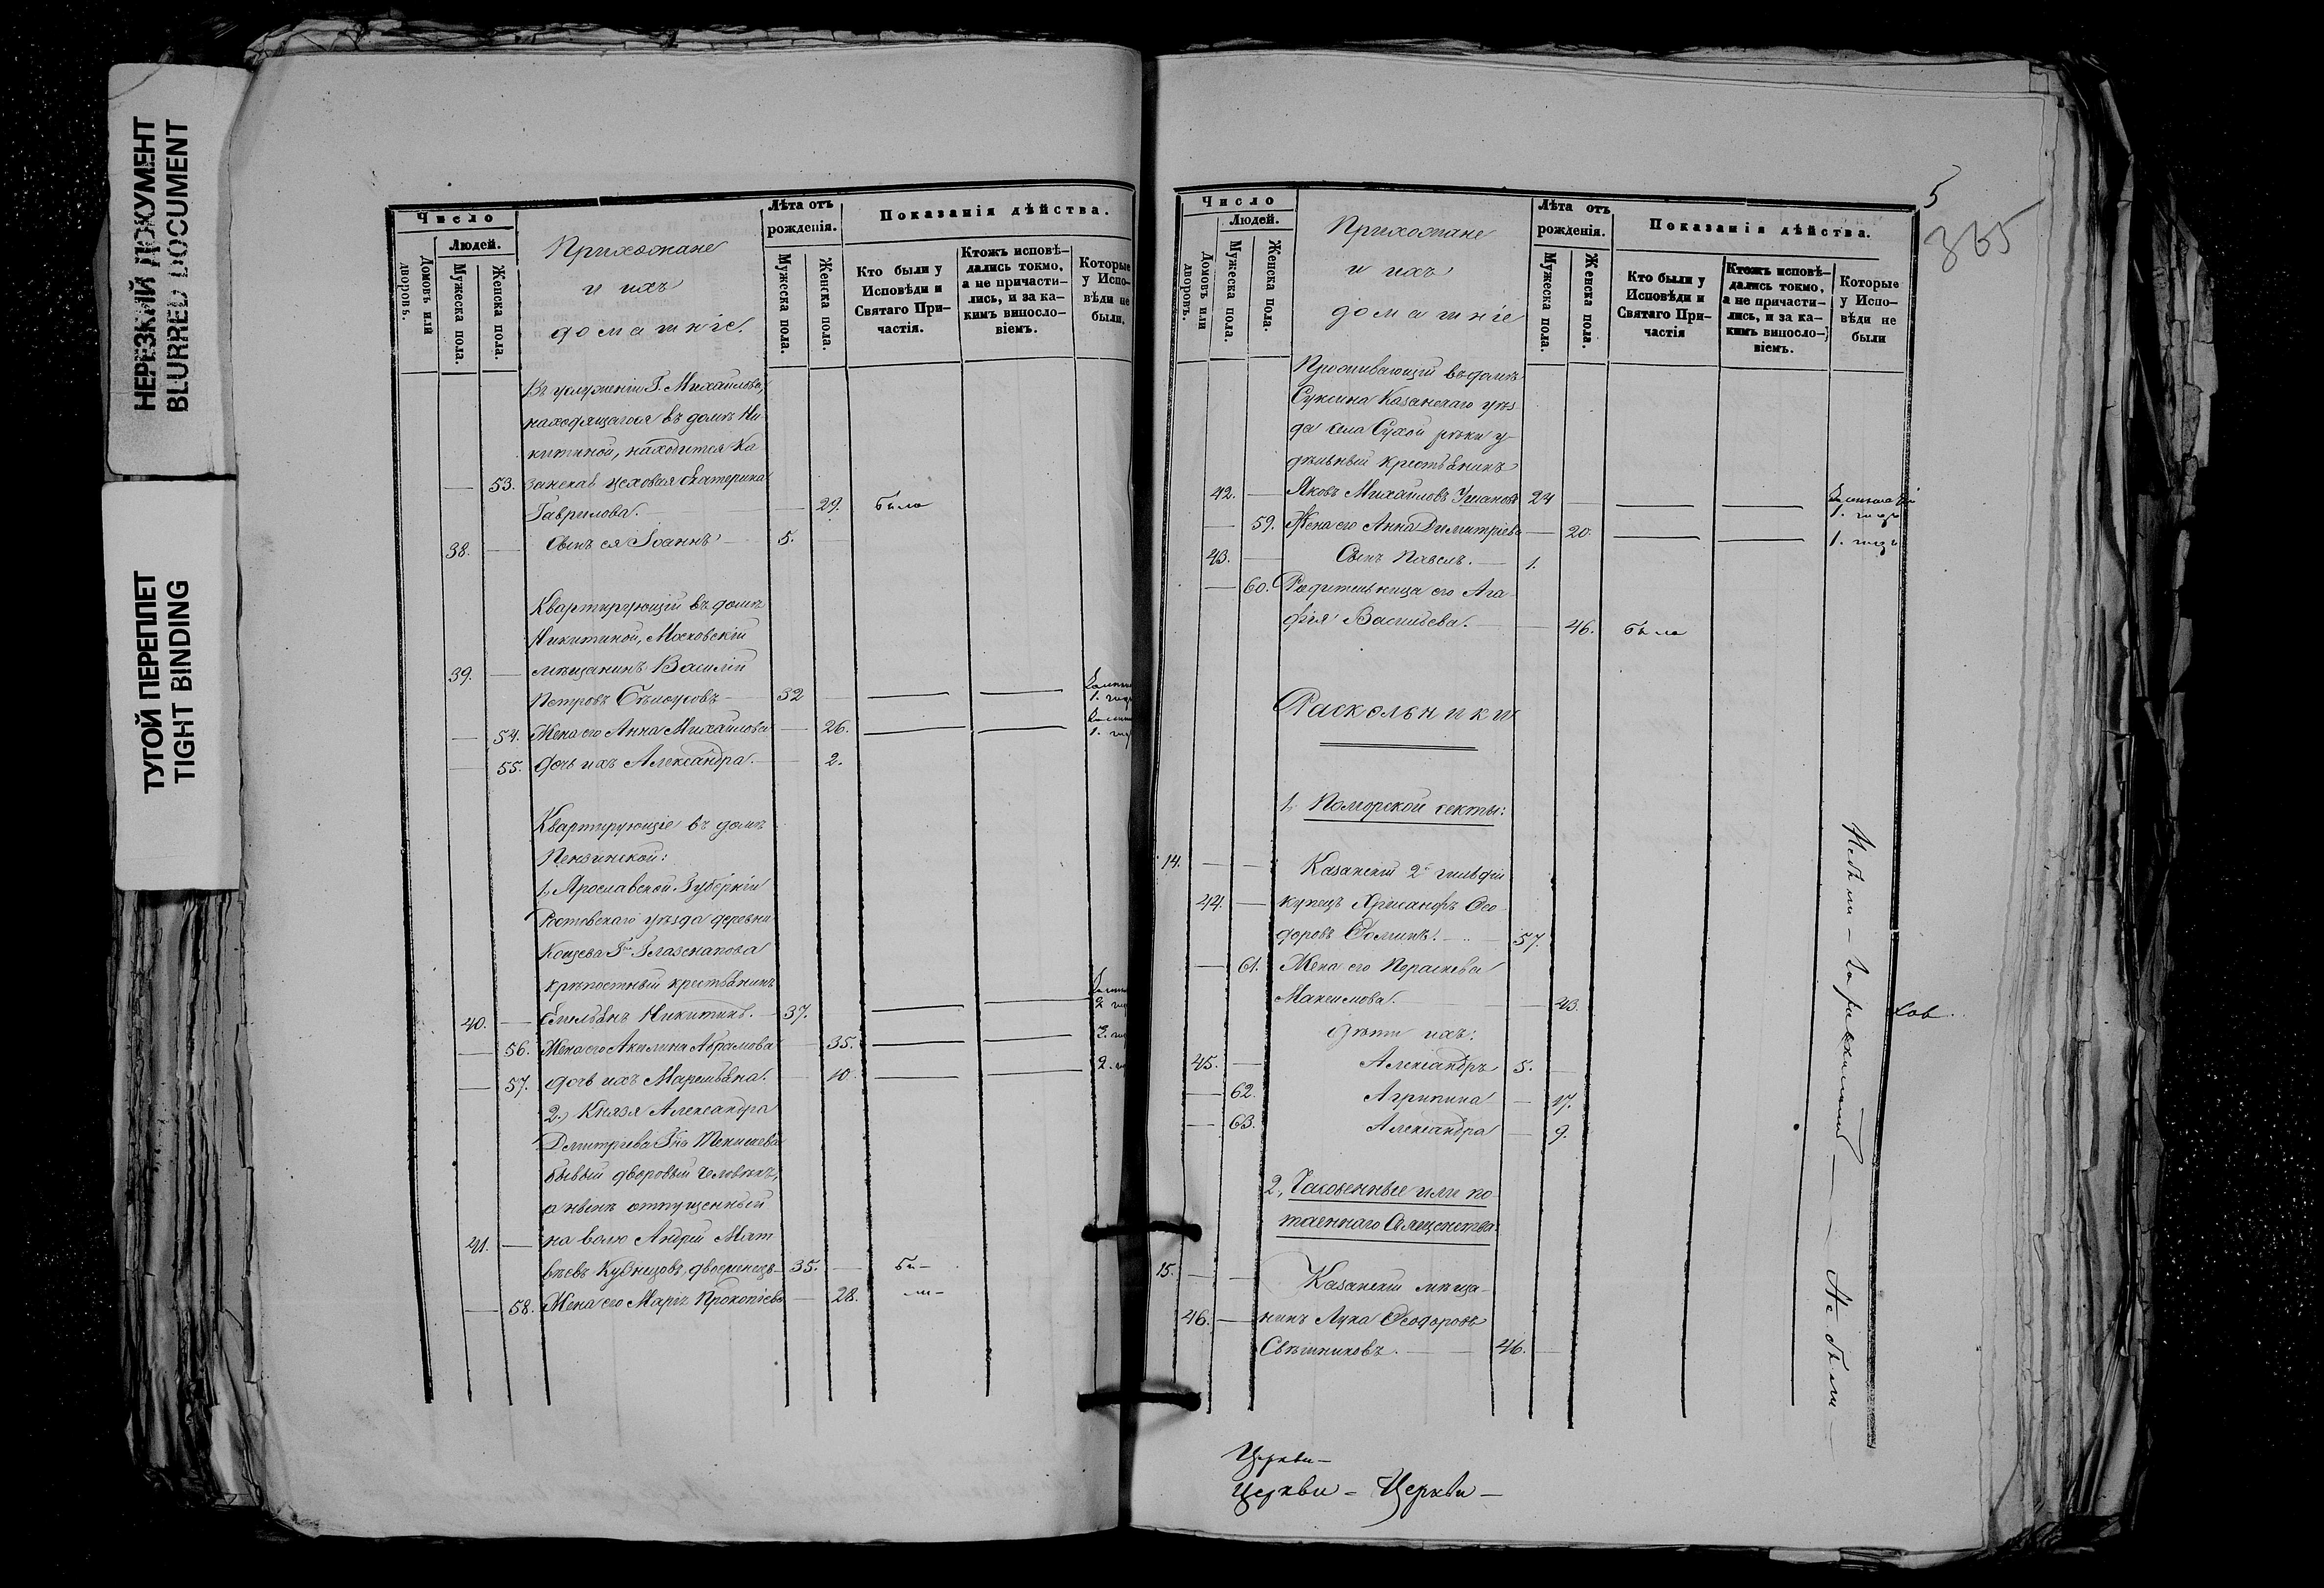 НЕРЕЗКИЙ ДОКУМЕНТ
BLURRED DOCUMENT
ТУГОЙ ПЕРЕПЛЕТ
TIGHT BINDING
Число
Домовъ или дворовъ.
Людей.
Мужеска пола.
Женска пола.
Прихожане
и ихъ
домашніе.
Лѣта отъ рожденія.
Мужеска пола.
Женска пола.
Показанія дѣйства.
Кто были у Исповѣди и Святаго Причастія.
Ктожъ исповѣдались токмо, а не причастились, и за какимъ винословіемъ.
Которые у Исповѣди не были.
Въ услуженіи Г. Михайлова,
находящагося въ домѣ Ни-
китиной, находится Ка-
53. занская цеховая Екатерина
Гаврилова. 29. была
38. Сынъ ея Іоаннъ 5.
Квартирующій въ домѣ
Никитиной, Московскій
39. мѣщанинъ Василій
Петровъ 32 1.
54. Жена его Анна Михайлова 26. 1.
55. Дочь ихъ Александра. 2.
Квартирующіе въ домѣ
Пензинской:
1, Ярославской Губерніи
Ростовскаго уѣзда деревни
Глазенапова
крѣпостный крестьянинъ
40. Емельянъ Никитинъ. 37. 2
56. Жена его Акилина Абрамова 35. 2.
57. Дочь ихъ Маремьяна. 10. 2.
2, Князя Александра
Дмитріева
бывый дворовый человѣкъ,
а нынѣ отпущенный
41. на волю Андрей Мат-
вѣевъ Кузнецовъ, двоеженецъ 35. бы-
58. Жена его Марѳа Прокопіева 28. ли-
5
365
Число
Домовъ или дворовъ.
Людей.
Мужеска пола.
Женска пола.
Прихожане
и ихъ
домашніе
Лѣта отъ рожденія.
Мужеска пола.
Женска пола.
Показанія дѣйства.
Кто были у Исповѣди и Святаго Причастія
Ктожъ исповѣдались токмо, а не причастились, и за какимъ винословіемъ.
Которые у Исповѣди не были
Проживающій въ домѣ
Суксина Казанскаго уѣз-
да села Сухой рѣки у-
дѣльный крестьянинъ
42. Яковъ Михайловъ Ушановъ 24 1.
59. Жена его Анна Димитріева 20. 1.
43. Сынъ Павелъ. 1.
60. Родительница его Ага-
фія Васильева. 46. была
Раскольники
1, Поморской секты:
14. Казанскій 2й гильдіи
44. купецъ Хрисанфъ Ѳео-
доровъ Ѳоминъ. 57.
61. Жена его Параскева
Максимова. 43.
Дѣти ихъ:
45. Александръ 5.
62. Агрипина 17.
63. Александра 9.
2, Часовенные или по-
таеннаго Священства
15. Казанскій мѣща-
46. нинъ Лука Ѳеодоровъ
Свѣшниковъ. 46.
Не были
Церкви-
Церкви - Церкви -